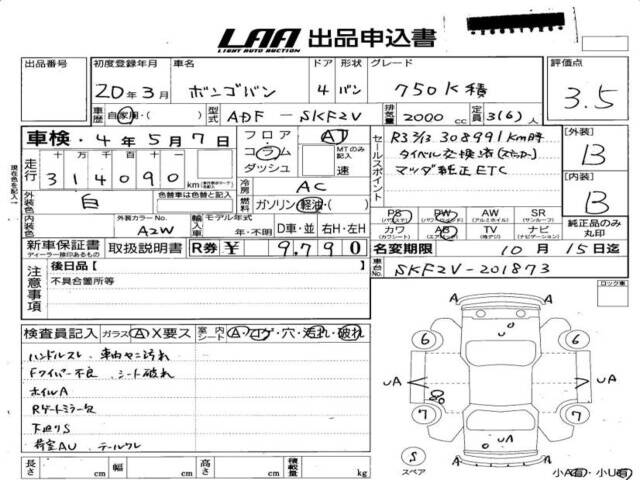 LAA 出品申込書
LIGHT AUTO AUCTION
出品番号 初度登録年月 車名 ドア 形状 グレード 評価点
20年3月 ボンゴバン 4 バン 750K積 3.5
車歴 自家用・( ) 型式 ADF - SKF2V 排気量 2000 cc 定員 3(6)人
車検・4年5月7日 フロア・コラム・ダッシュ AT MTのみ記入 速
セールスポイント R3 3/13 308991km時
タイベル交換済(ステッカー)
マツダ純正ETC
[外装] B
[内装] B
現在色を記入
走行 十万 万 千 百 十 一
314090 km
冷房 AC
外装色 白 色替車は色替と記入 燃料 ガソリン・軽油・( )
外装カラーNo. A2W 輸入車 モデル年式 年・不明 D車・並 右H・左H
PS (パワステ) PW (パワーウィンドウ) AW (アルミホイル) SR (サンルーフ)
カワ (カワシート) AB (エアバッグ) TV (地デジ) ナビ (ナビゲーション)
純正品のみ丸印
新車保証書 ディーラー捺印あるもの 取扱説明書 R券 ¥ 9,790
名変期限 10月15日迄
車台No. SKF2V-201873
注意事項 後日品[ ]
不具合箇所等
ロック車
検査員記入 ガラス A X要ス 室内 シート A・コゲ・穴・汚れ・破れ
ハンドルスレ 車内ヤニ汚れ
Fワイパー不良 シート破れ
ホイルA
Rゲートミラー欠
下廻りS
荷室AU テールワレ
A A
6 6
U
UA UA
7 7
UA
A A
S
スペア
小A(有)・小U(有)
長さ cm 幅 cm 高さ cm 積載量 kg